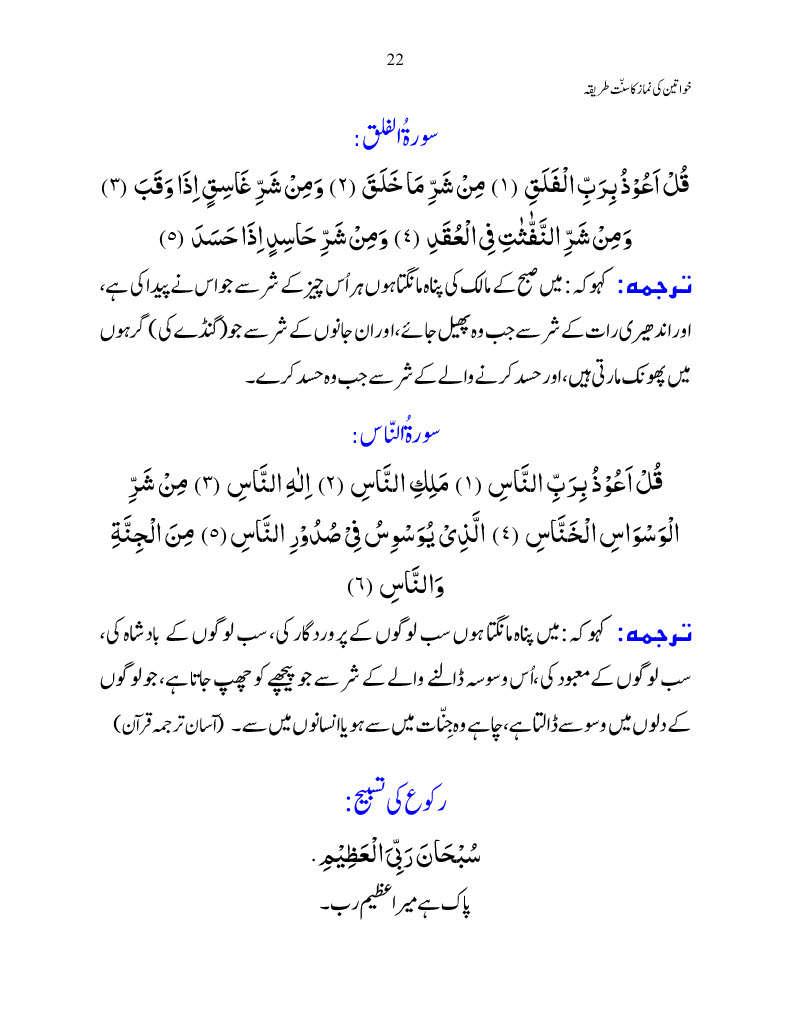 22
خواتین کی نماز کا سنّت طریقہ
سورۃُ الفلق:
قُلْ اَعُوْذُ بِرَبِّ الْفَلَقِ (١) مِنْ شَرِّ مَا خَلَقَ (٢) وَمِنْ شَرِّ غَاسِقٍ اِذَا وَقَبَ (٣)
وَمِنْ شَرِّ النَّفّٰثٰتِ فِی الْعُقَدِ (٤) وَمِنْ شَرِّ حَاسِدٍ اِذَا حَسَدَ (٥)
ترجمہ: کہو کہ: میں صبح کے مالک کی پناہ مانگتا ہوں ہر اُس چیز کے شر سے جو اس نے پیدا کی ہے،
اور اندھیری رات کے شر سے جب وہ پھیل جائے، اور ان جانوں کے شر سے جو (گنڈے کی) گرہوں
میں پھونک مارتی ہیں، اور حسد کرنے والے کے شر سے جب وہ حسد کرے۔
سورۃُ النّاس:
قُلْ اَعُوْذُ بِرَبِّ النَّاسِ (١) مَلِكِ النَّاسِ (٢) اِلٰهِ النَّاسِ (٣) مِنْ شَرِّ
الْوَسْوَاسِ الْخَنَّاسِ (٤) الَّذِیْ یُوَسْوِسُ فِیْ صُدُوْرِ النَّاسِ (٥) مِنَ الْجِنَّةِ
وَالنَّاسِ (٦)
ترجمہ: کہو کہ: میں پناہ مانگتا ہوں سب لوگوں کے پروردگار کی، سب لوگوں کے بادشاہ کی،
سب لوگوں کے معبود کی، اُس وسوسہ ڈالنے والے کے شر سے جو پیچھے کو چھپ جاتا ہے، جو لوگوں
کے دلوں میں وسوسے ڈالتا ہے، چاہے وہ جِنّات میں سے ہو یا انسانوں میں سے۔ (آسان ترجمہ قرآن)
رکوع کی تسبیح:
سُبْحَانَ رَبِّیَ الْعَظِیْمِ.
پاک ہے میرا عظیم رب۔